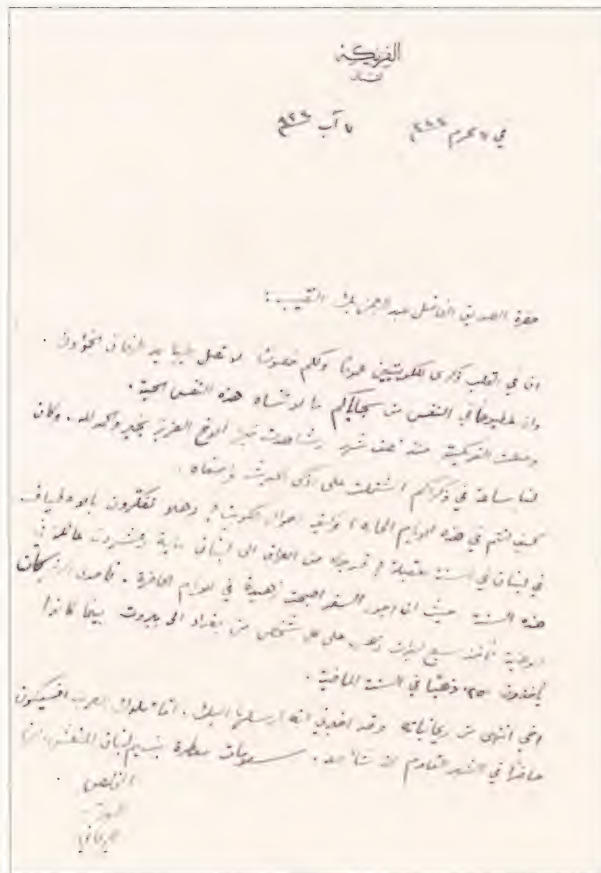 الفريكة
لبنان
في ٧ محرم ٧ آب
حضرة الصديق الفاضل عبد الرحمن بك النقيب :
ان في القلب ذكرى للكويتيين عموماً ولكم خصوصاً لا تصل اليها يد الزمان الخؤون
وان في النفس من سجاياكم ما لا تنساه هذه النفس الحية .
وصلت الفريكة منذ نصف شهر وشاهدت الاخ العزيز بخير والحمد لله . وكان
لنا ساعة في ذكراكم اشتملت على
كيف انتم في هذه الايام الحارة ؟ وكيف احوال الكويت ؟ وهل تفكرون بالاصطياف
في لبنان في السنة المقبلة ؟ من العراق الى لبنان عائلة في
هذه السنة حيث ان اجور السفر اصبحت زهيدة في الايام الحاضرة .
تأخذ سبع ليرات ذهب على كل شخص من بغداد الى بيروت بينما كانوا
يأخذون ٢٥ ذهباً في السنة الماضية .
اخي انتهى من ريحانياته وقد اخبرني انه ارسلها اليك . اما ملوك العرب فسيكون
حاضراً في الشهر القادم ان شاء الله . معطرة بنسيم لبنان
المخلص
ريحاني